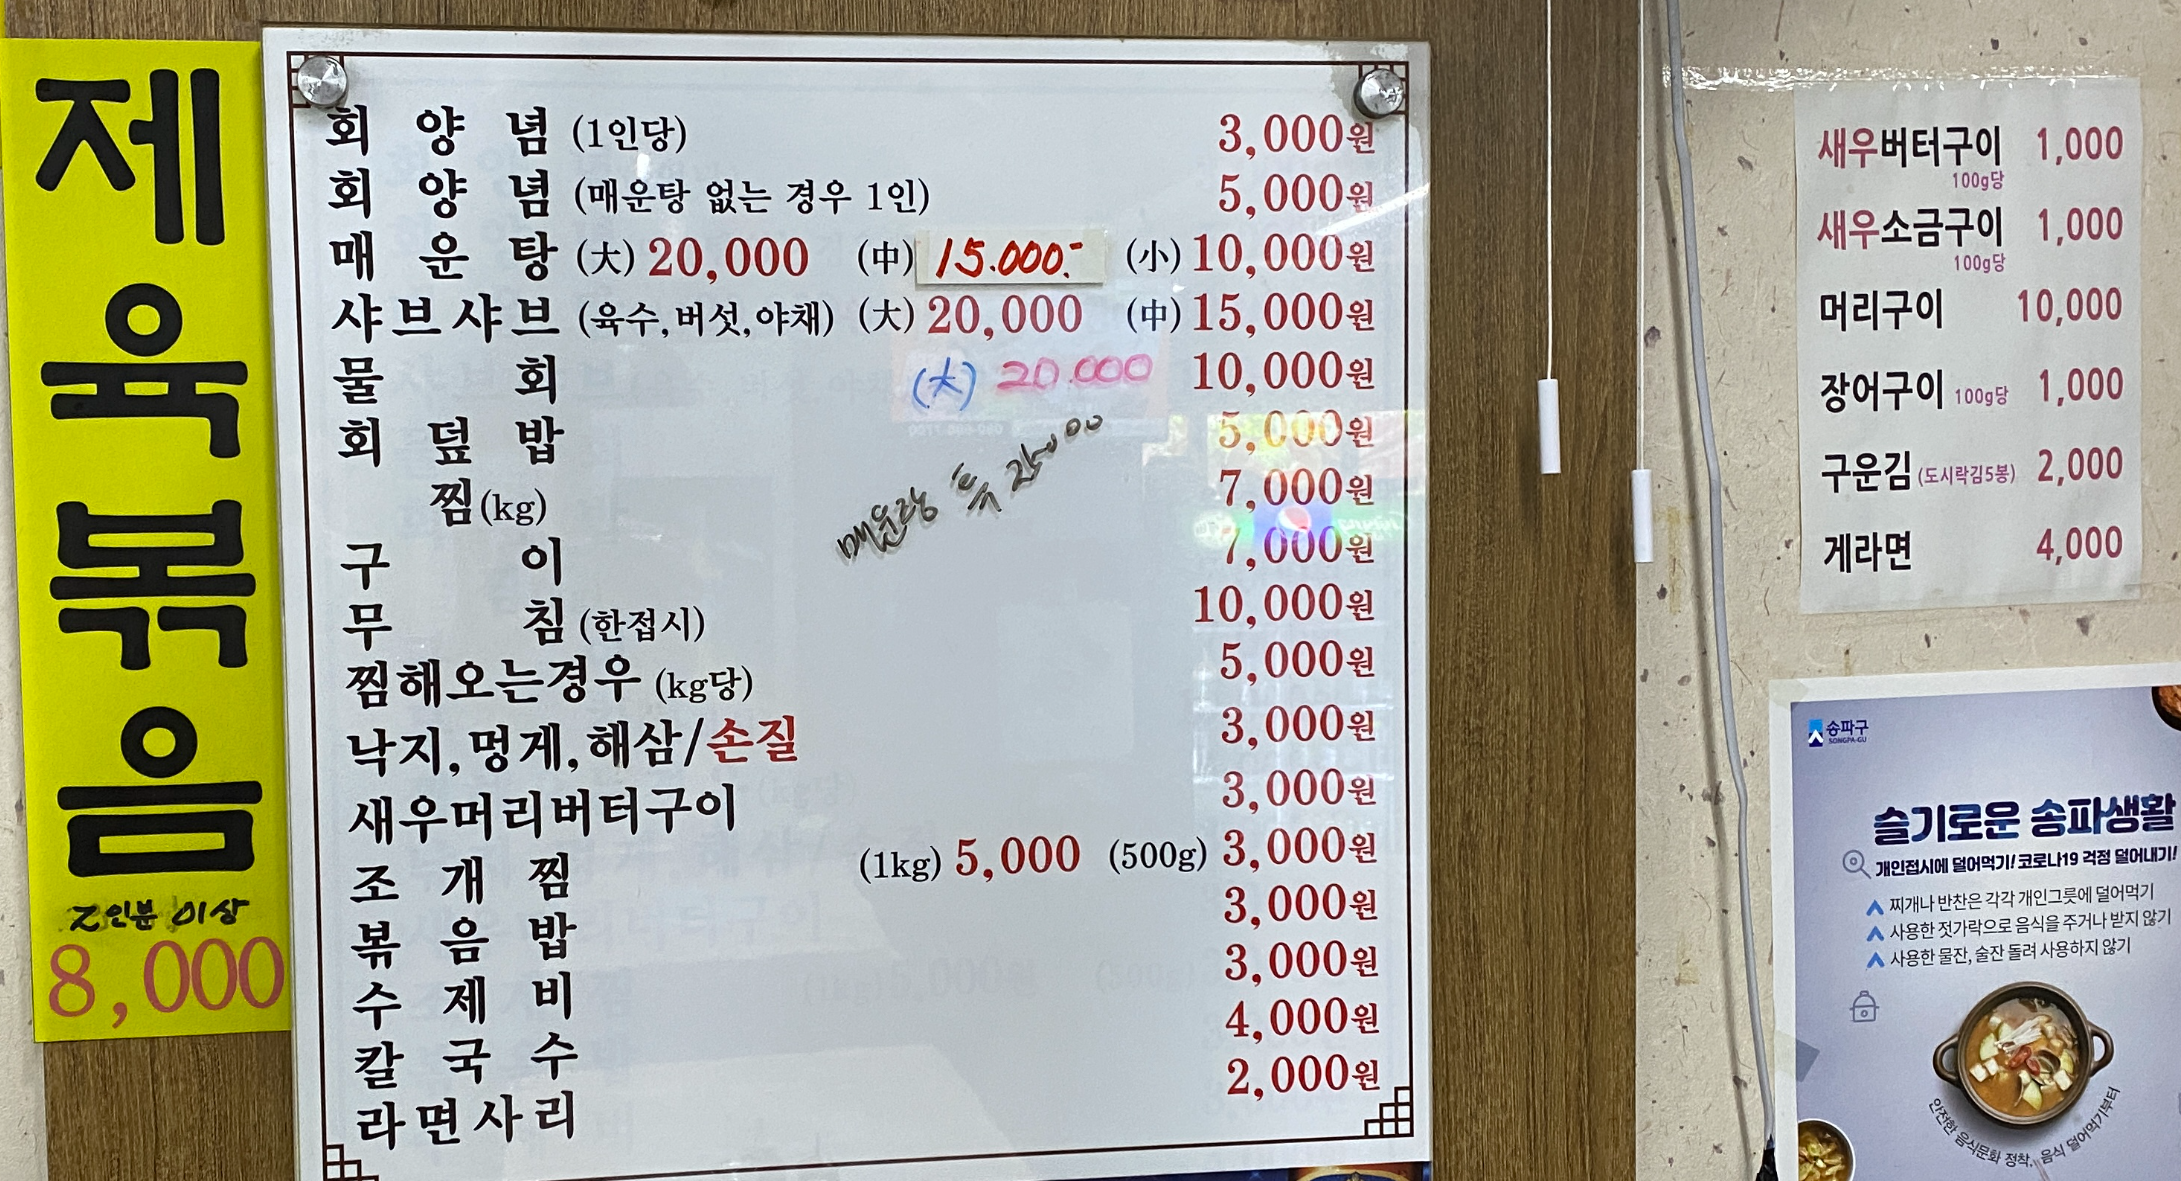 제육볶음
2인분 이상
8,000
회양념 (1인당) 3,000원
회양념 (매운탕 없는 경우 1인) 5,000원
매운탕 (大) 20,000 (中) 15.000.- (小) 10,000원
샤브샤브 (육수,버섯,야채) (大) 20,000 (中) 15,000원
물회 (大) 20.000 10,000원
회덮밥 5,000원
찜(kg) 7,000원
매운탕 특
구이 7,000원
무침 (한접시) 10,000원
찜해오는경우 (kg당) 5,000원
낙지,멍게,해삼/손질 3,000원
새우머리버터구이 3,000원
조개찜 (1kg) 5,000 (500g) 3,000원
볶음밥 3,000원
수제비 3,000원
칼국수 4,000원
라면사리 2,000원
새우버터구이 1,000
100g당
새우소금구이 1,000
100g당
머리구이 10,000
장어구이 100g당 1,000
구운김 (도시락김5봉) 2,000
게라면 4,000
송파구
SONGPA-GU
슬기로운 송파생활
개인접시에 덜어먹기! 코로나19 걱정 덜어내기!
찌개나 반찬은 각각 개인그릇에 덜어먹기
사용한 젓가락으로 음식을 주거나 받지 않기
사용한 물잔, 술잔 돌려 사용하지 않기
안전한 음식문화 정착, 음식 덜어먹기부터